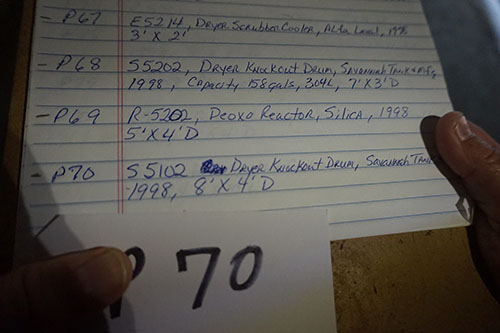 - P67 E5214, Dryer Scrubber Cooler, Alfa Laval, 1998
3' X 2'
- P68 S5202, Dryer Knockout Drum, Savannah Tank & Mfg,
1998, Capacity 158gals, 304L, 7'X3'D
- P69 R-5202, Deoxo Reactor, Silica, 1998
5'X4'D
- P70 S5102 Dryer Knockout Drum, Savannah Tank
1998, 8'X4'D
P 70